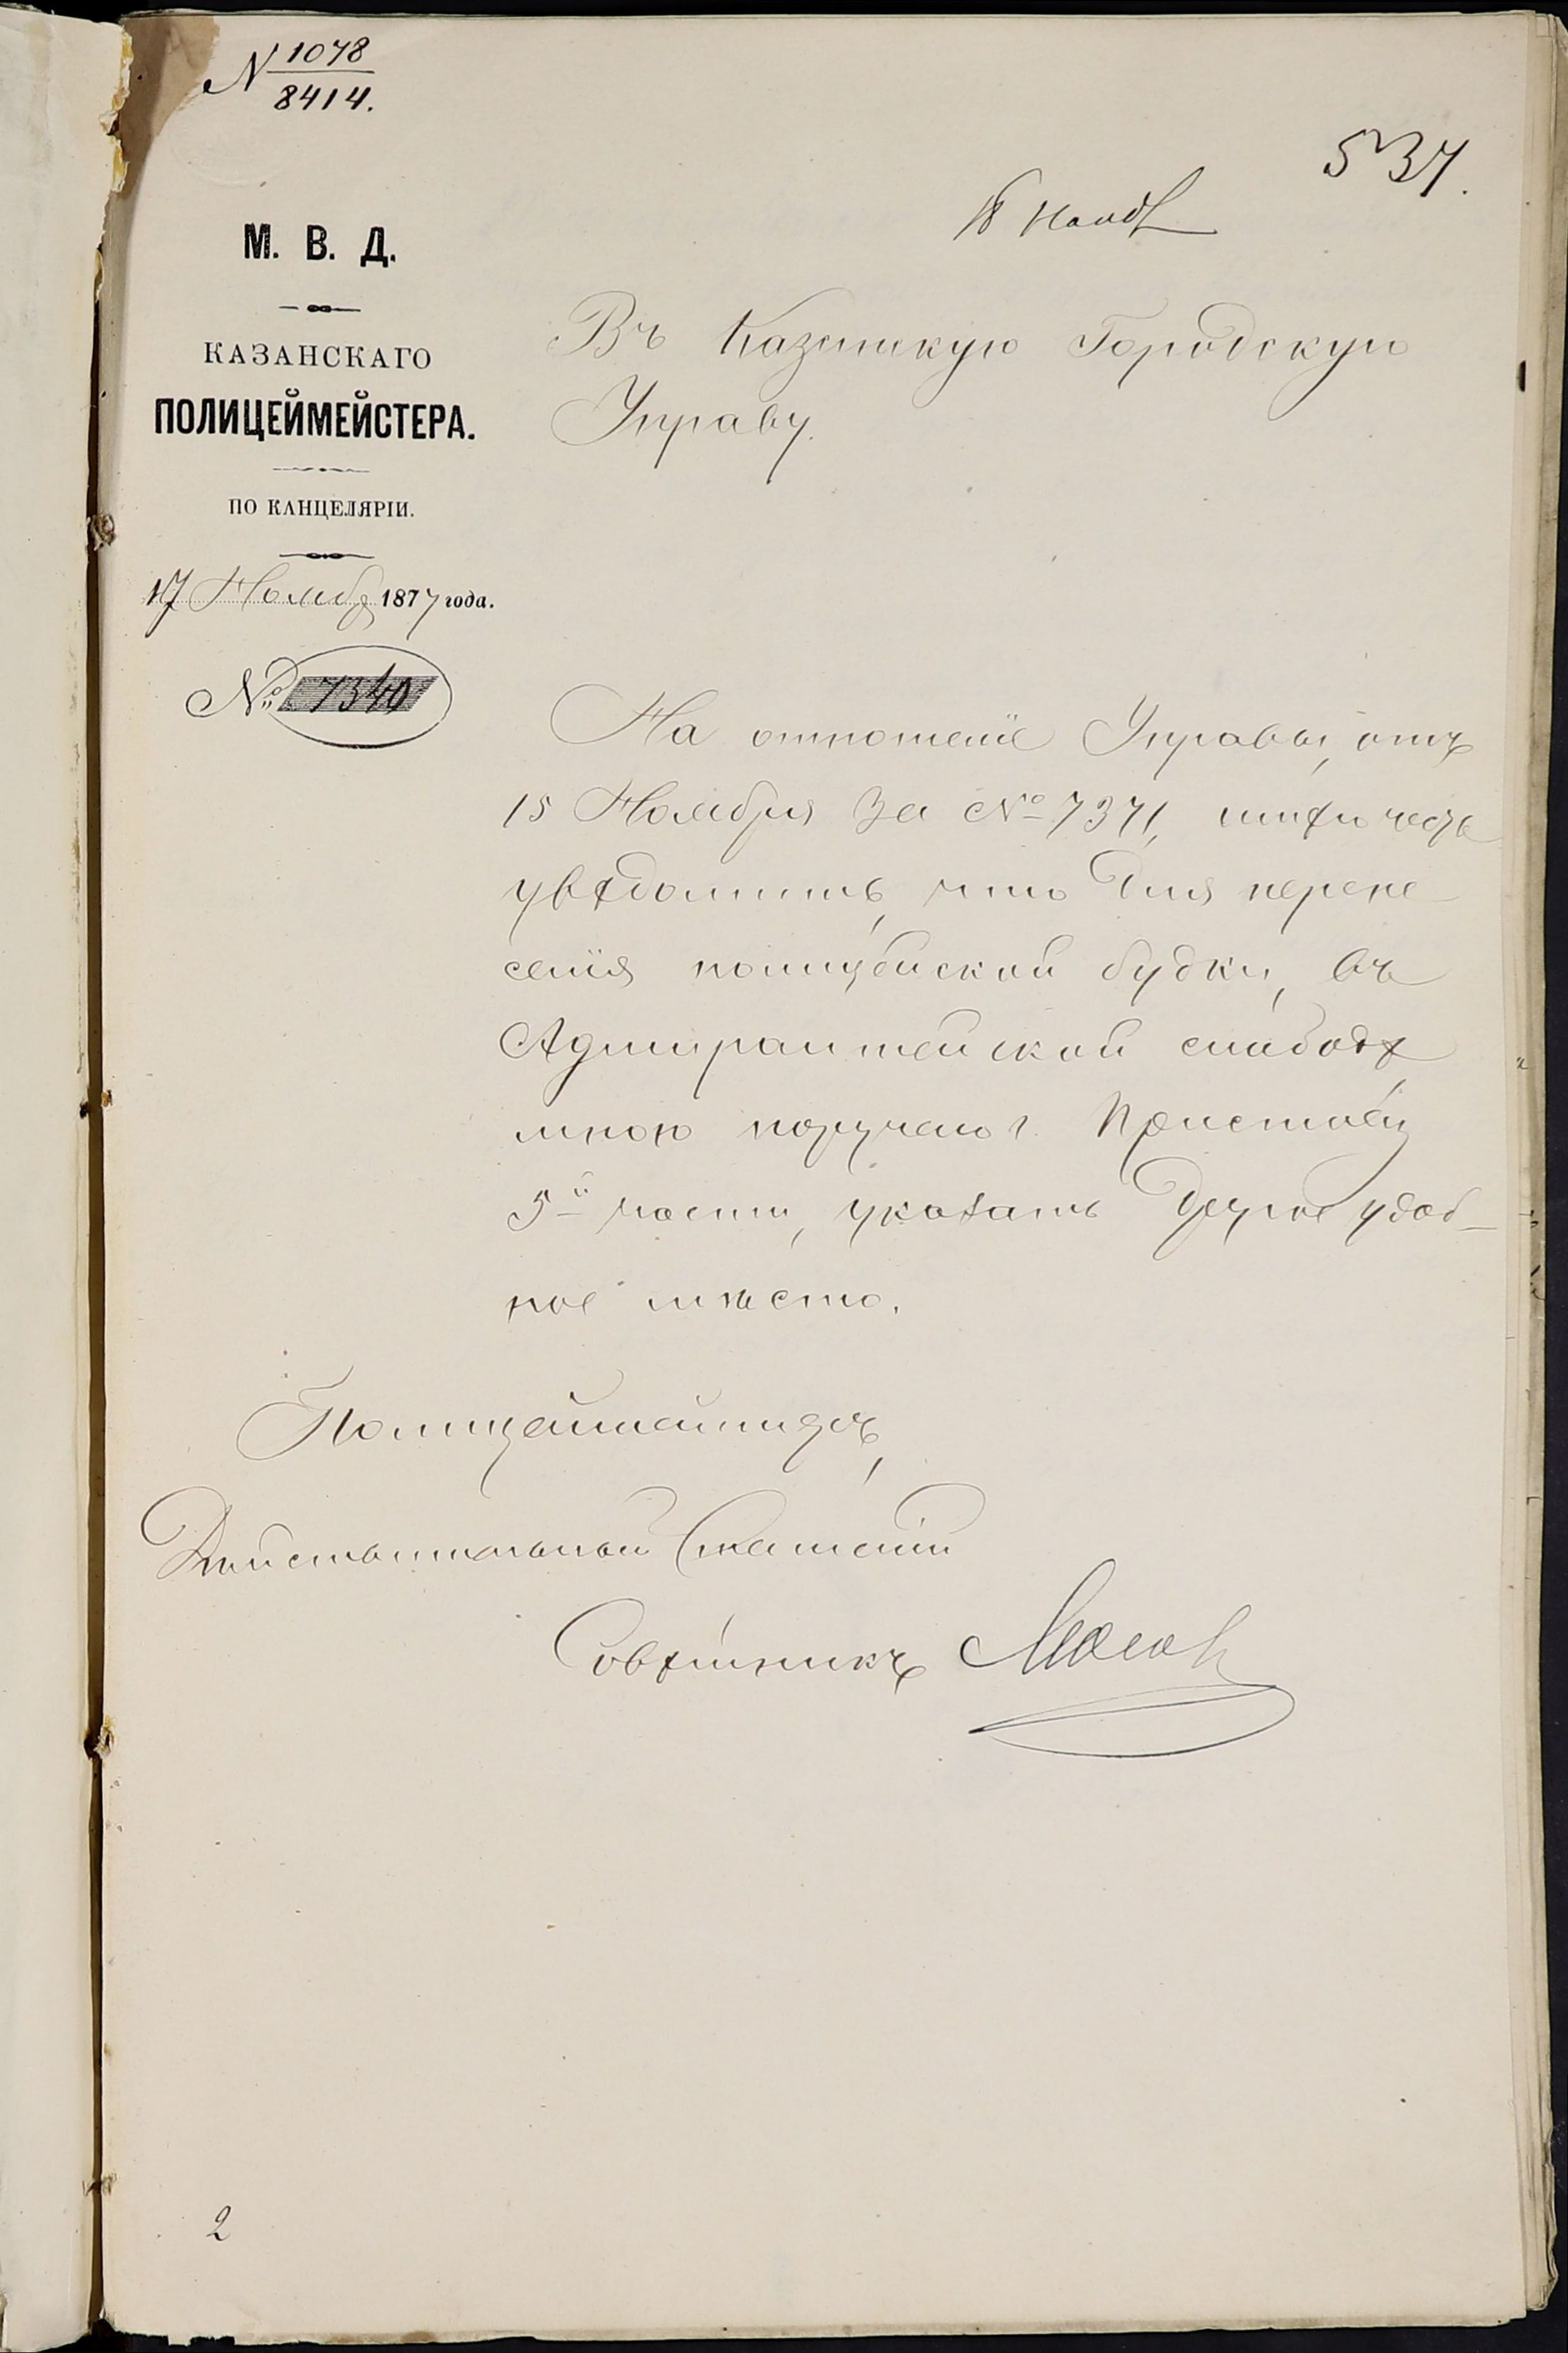 N 1078
8414.
537.
18 Нояб
М. В. Д.
КАЗАНСКАГО
ПОЛИЦЕЙМЕЙСТЕРА.
ПО КАНЦЕЛЯРІИ.
17 Ноябр 1877 года.
№ 7340
Въ Казанскую Городскую
Управу.
На отношеніе Управы, отъ
15 Ноября за № 7371, имѣю честь
увѣдомить, что для перене
сенія полицейской будки, въ
Адмиралтейской слободѣ,
мною поручено г. Приставу
5й части, указать другое удоб-
ное мѣсто.
Полицеймейстеръ,
Дѣйствительный Статскій
Совѣтникъ
2